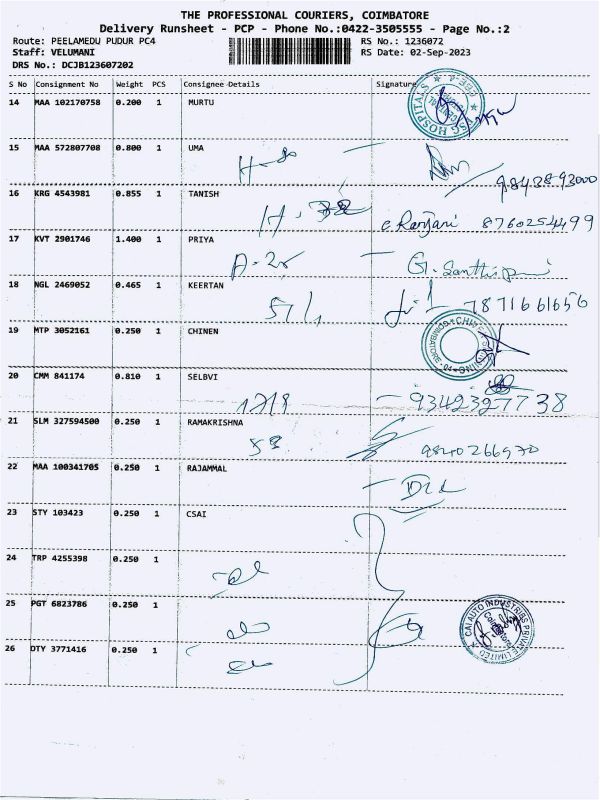 THE PROFESSIONAL COURIERS, COIMBATORE
Delivery Runsheet - PCP - Phone No.:0422-3505555 - Page No.:2
Route: PEELAMEDU PUDUR PC4 RS No.: 1236072
Staff: VELUMANI RS Date: 02-Sep-2023
DRS No.: DCJB123607202
S No Consignment No Weight PCS Consignee Details Signature
14 MAA 102170758 0.200 1 MURTU
PSG HOSPITALS
15 MAA 572807708 0.800 1 UMA
H-80
9843893000
16 KRG 4543981 0.855 1 TANISH
c. Ranjani 8760254499
17 KVT 2901746 1.400 1 PRIYA
A-28
18 NGL 2469052 0.465 1 KEERTAN
7871661656
19 MTP 3052161 0.250 1 CHINEN
20 CMM 841174 0.810 1 SELBVI
9342327738
21 SLM 327594500 0.250 1 RAMAKRISHNA
53 9840266970
22 MAA 100341705 0.250 1 RAJAMMAL
23 STY 103423 0.250 1 CSAI
24 TRP 4255398 0.250 1
25 PGT 6823786 0.250 1
CAI AUTO INDUSTRIES PRIVATE LIMITED
26 DTY 3771416 0.250 1